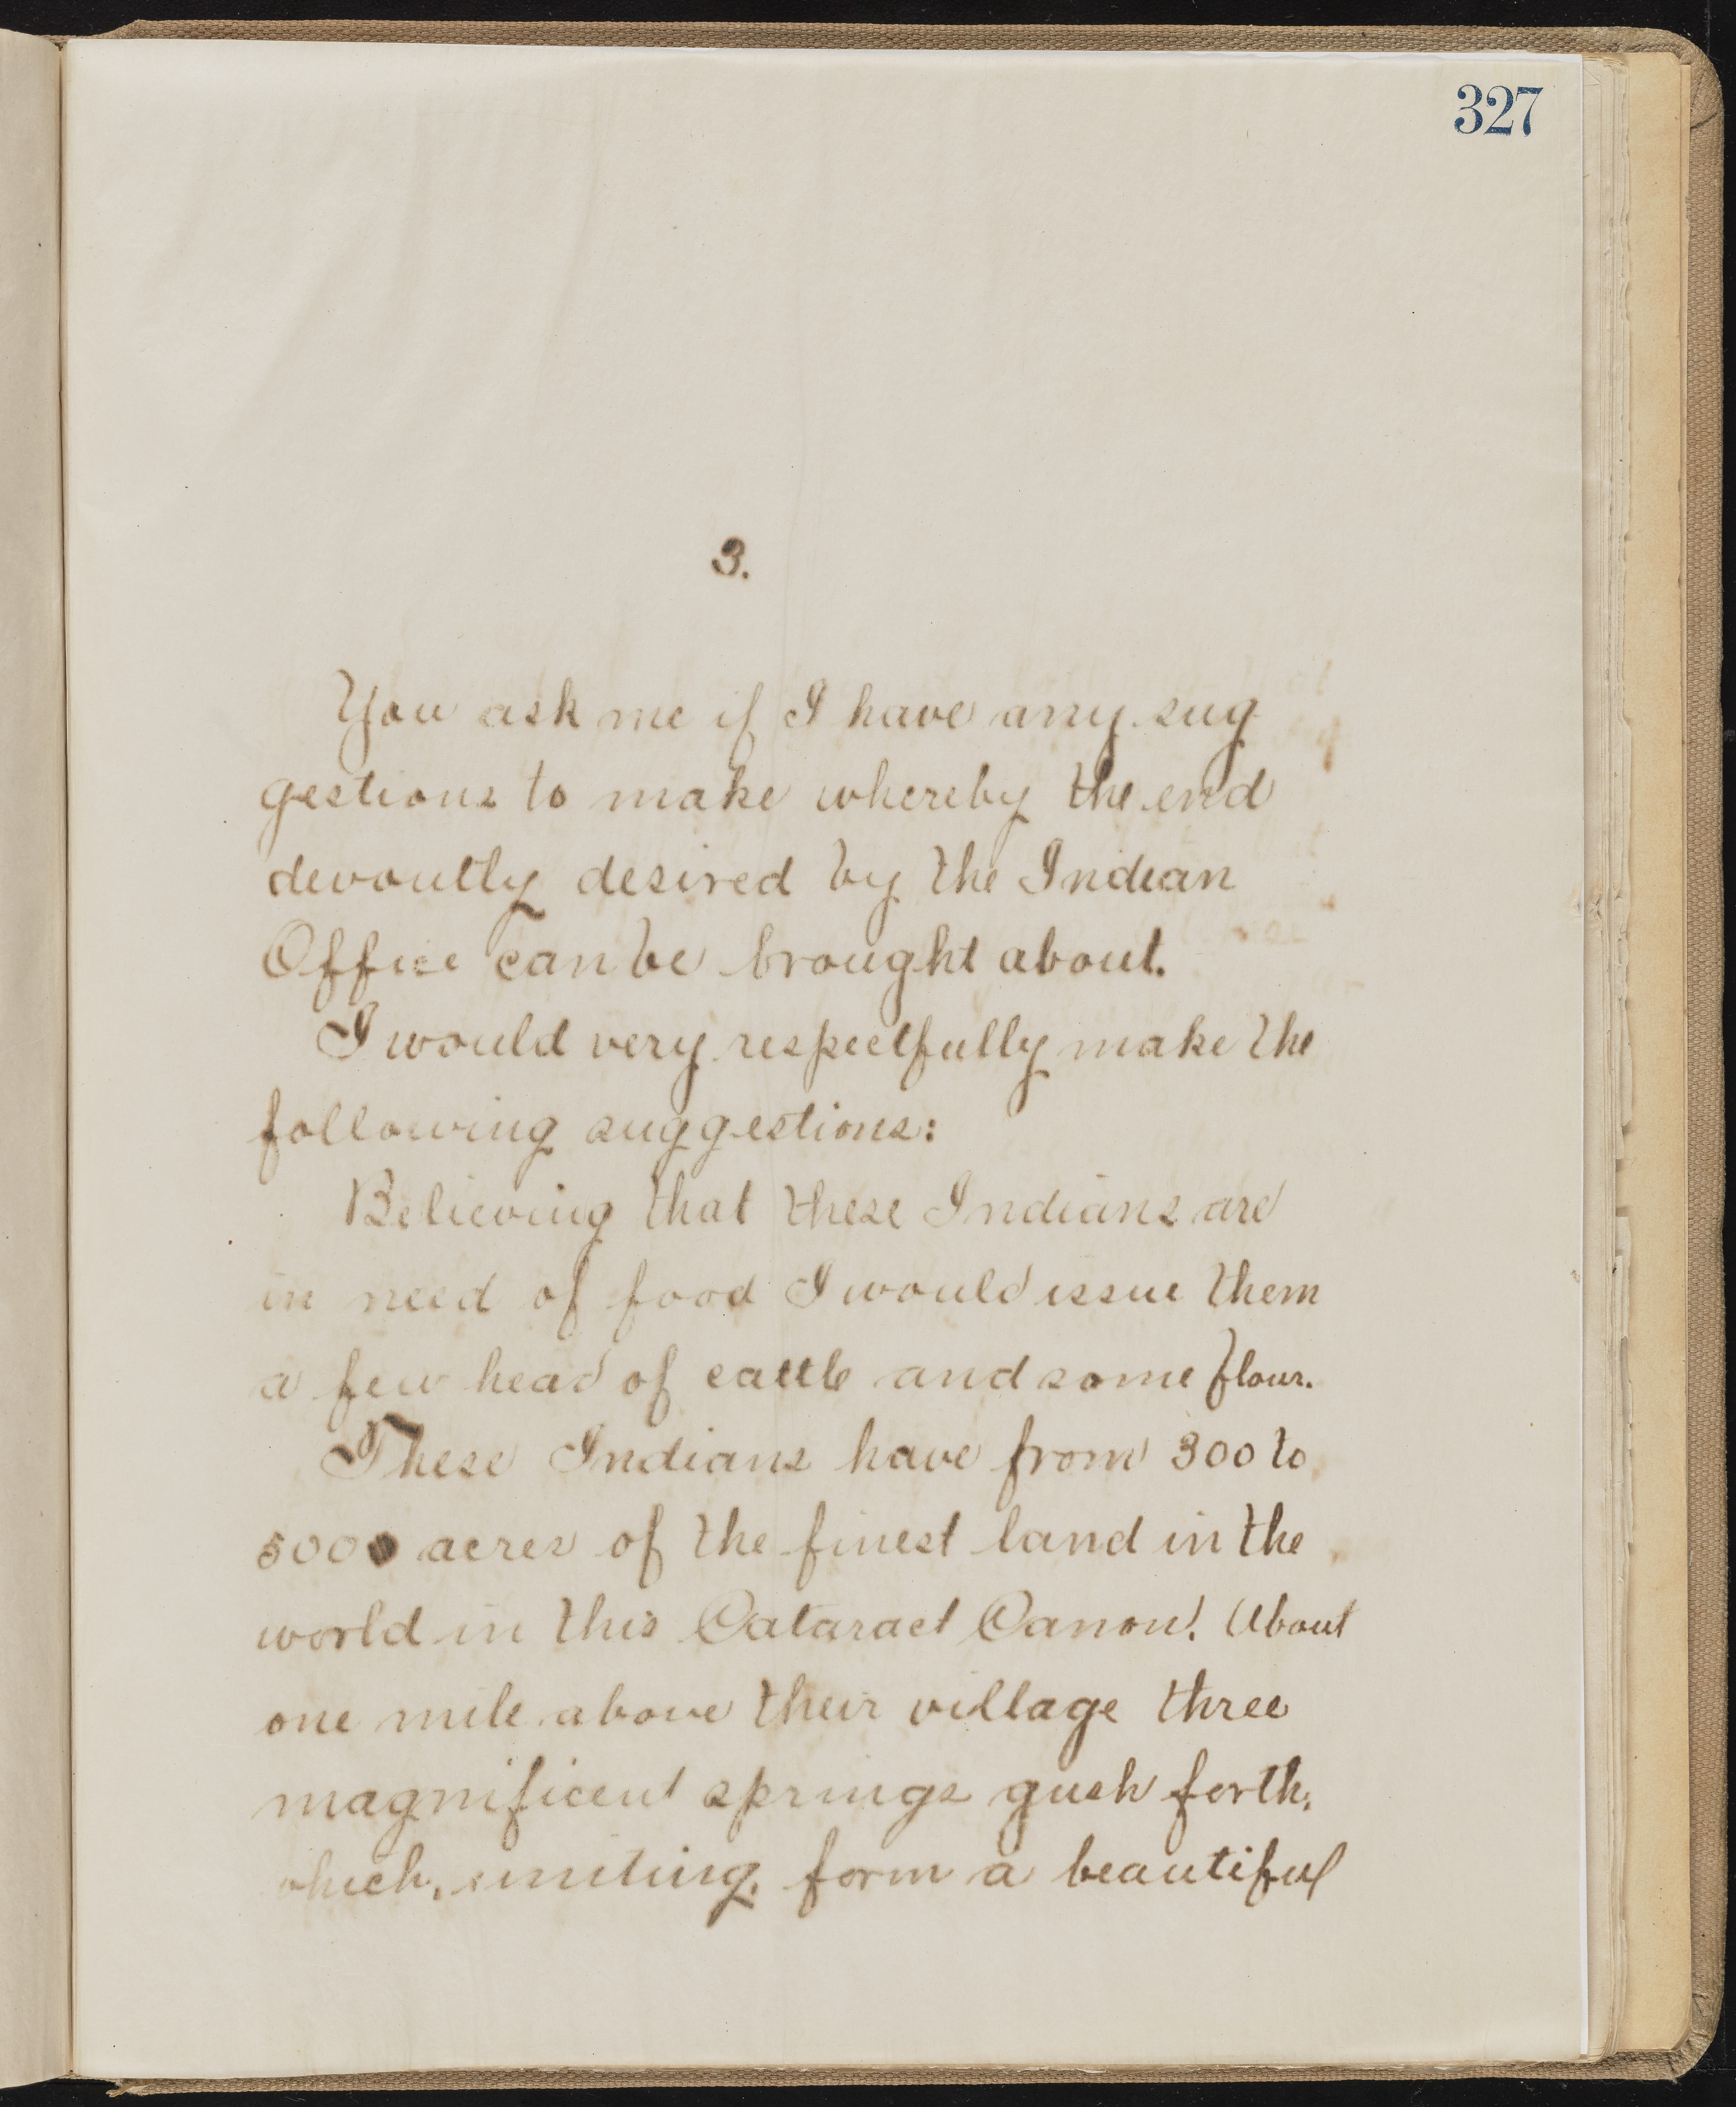 327
3.
You ask me if I have any sug
gestions to make whereby the end
devoutly desired by the Indian
Office can be brought about.
I would very respectfully make the
following suggestions:
Believing that these Indians are
in need of food I would issue them
a few head of cattle and some flour.
These Indians have from 300 to
5000 acres of the finest land in the
world in this Cataract Canon. About
one mile above their village three
magnificent springs gush forth,
which, uniting, form a beautiful